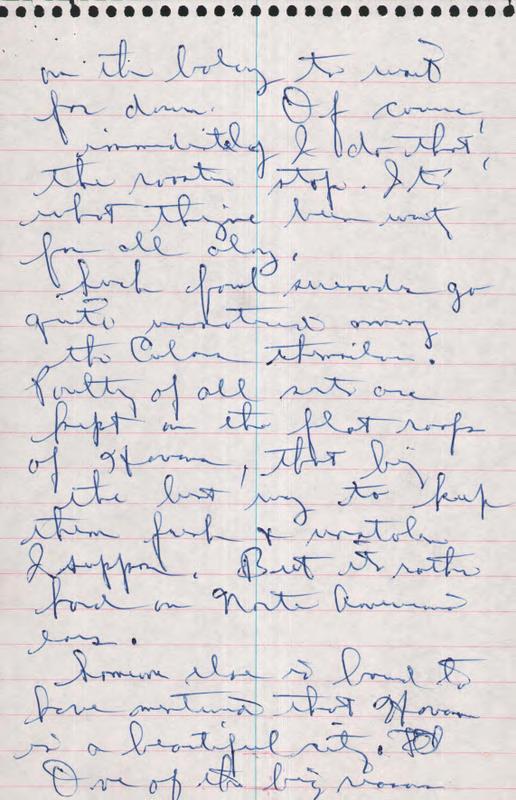 on the balcony to wait
for dawn. Of course,
immediately I do that,
the roosters stop. It's
what they've been waiting
for all along.
Such fowl serenades go
quite unnoticed among
the Cubans themselves.
Poultry of all sorts are
kept on the flat roofs
of Havana, that being
the best way to keep
them fresh & unstolen
I suppose. But it's rather
hard on North American
ears.
Someone else is bound to
have mentioned that Havana
is a beautiful city.
One of the big reasons